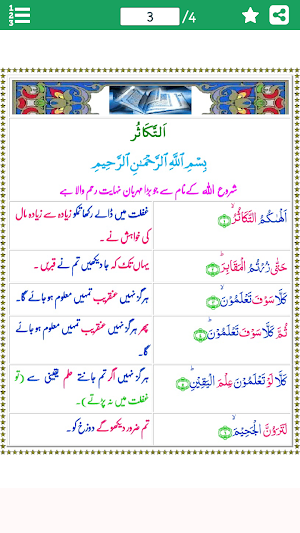 1
2
3
3
/4
اَلتَّكَاثُر
بِسْمِ اللّٰهِ الرَّحْمٰنِ الرَّحِيْمِ
شروع اللہ کے نام سے جو بڑا مہربان نہایت رحم والا ہے
اَلْهٰىكُمُ التَّكَاثُرُ ۙ﴿۱﴾
غفلت میں ڈالے رکھا تمکو زیادہ سے زیادہ مال
کی خواہش نے۔
حَتّٰى زُرْتُمُ الْمَقَابِرَ ؕ﴿۲﴾
یہاں تک کہ جا دیکھیں تم نے قبریں۔
كَلَّا سَوْفَ تَعْلَمُوْنَ ۙ﴿۳﴾
ہر گز نہیں عنقریب تمہیں معلوم ہو جائے گا۔
ثُمَّ كَلَّا سَوْفَ تَعْلَمُوْنَ ؕ﴿۴﴾
پھر ہر گز نہیں عنقریب تمہیں معلوم ہو جائے
گا۔
كَلَّا لَوْ تَعْلَمُوْنَ عِلْمَ الْيَقِيْنِ ؕ﴿۵﴾
ہر گز نہیں اگر تم جانتے علم یقینی سے (تو
غفلت میں نہ پڑتے)۔
لَتَرَوُنَّ الْجَحِيْمَ ۙ﴿۶﴾
تم ضرور دیکھو گے دوزخ کو۔